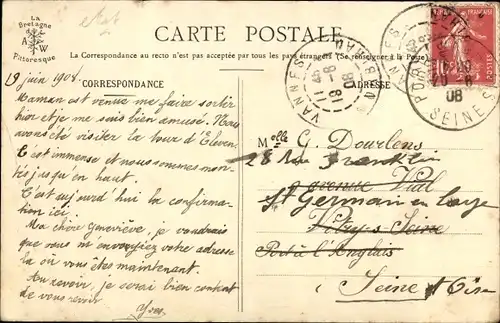 La
Bretagne
A W
Pittoresque
CARTE POSTALE
La Correspondance au recto n'est pas acceptée par tous les pays étrangers (Se renseigner à la Poste)
CORRESPONDANCE
ADRESSE
19 juin 1908.
Maman est venue me faire sortir
hier et je me suis bien amusé. Nous
avons été visiter la tour d'Elven
C'est immense et nous sommes mon-
tés jusqu'en haut.
C'est aujourd'hui la confirma-
tion ici.
Ma chère Geneviève, je voudrais
que vous m'envoyiez votre adresse
là où vous êtes maintenant.
Au revoir, je serai bien content
de vous revoir
Yves
VANNES
MORBIHAN
PORT
SEINE
08
POSTES
Melle G. Dourlens
28 Rue Franklin
avenue Vial
St Germain en Laye
Vitry s Seine
Port à l'Anglais
Seine et Oise